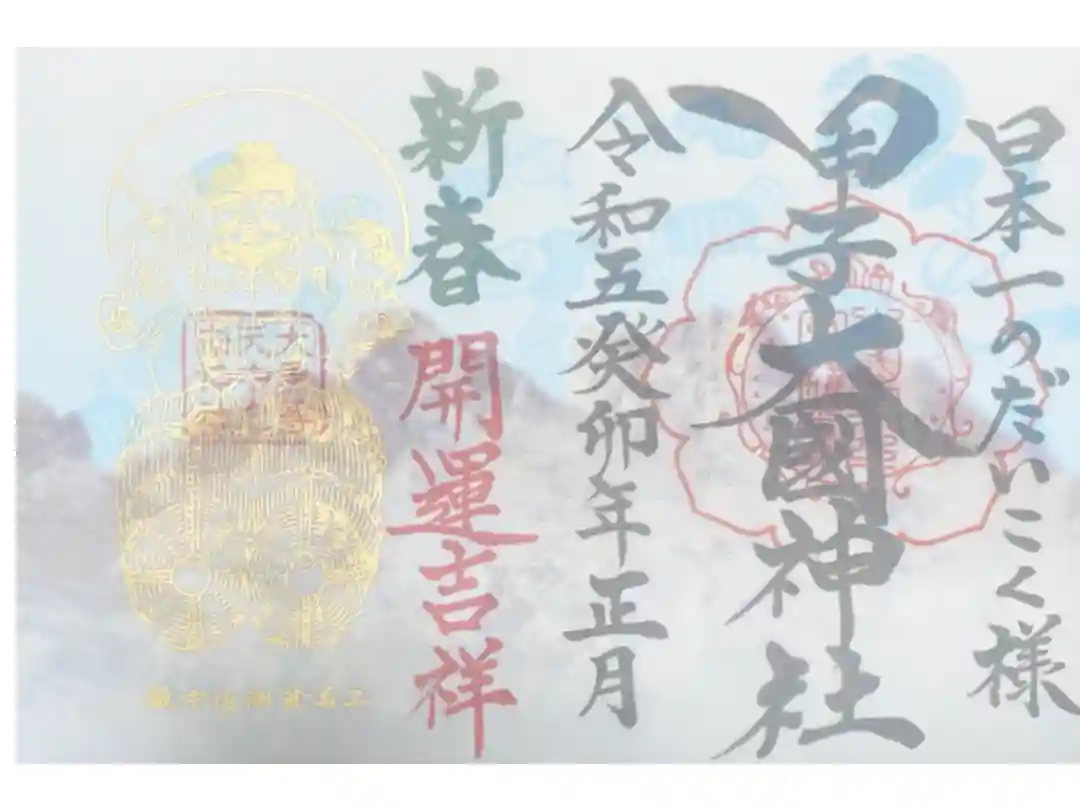 日本一のだいこく様
甲子大國神社
令和五癸卯年正月
新春 開運吉祥